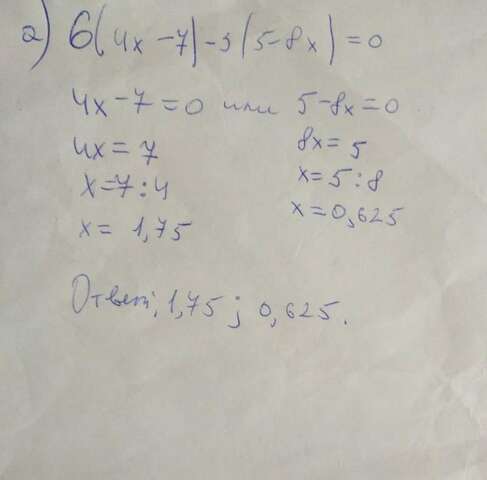 a) 6(4x-7)-3(5-8x)=0
4x-7=0 или 5-8x=0
4x=7 8x=5
x=7:4 x=5:8
x=1,75 x=0,625
Ответ: 1,75; 0,625.